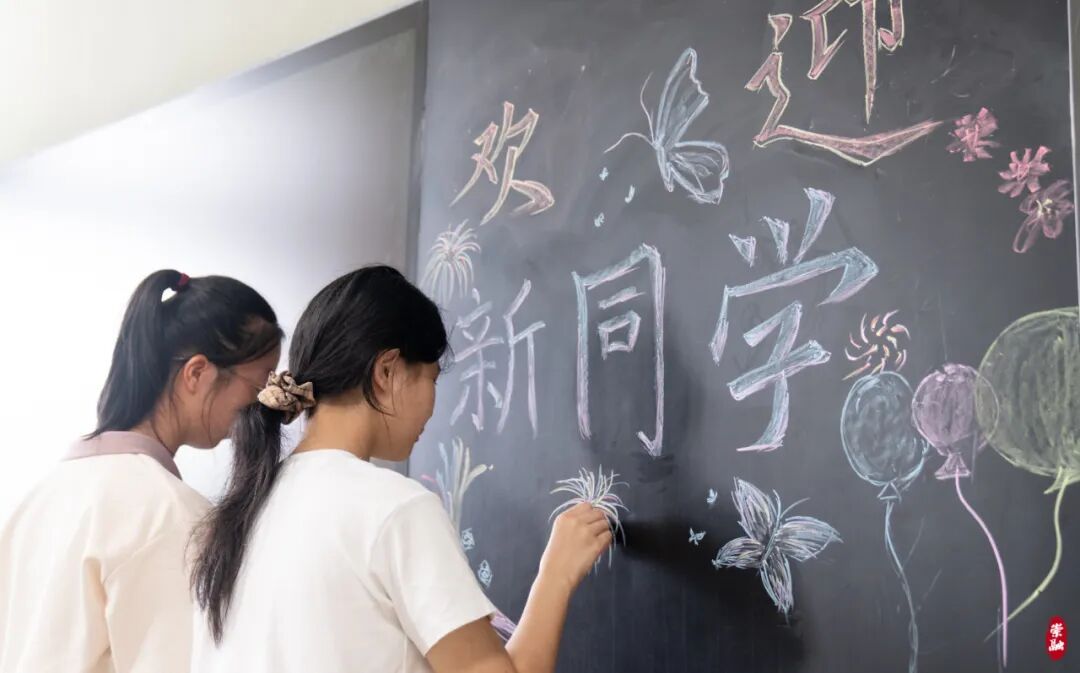 欢迎
新同学
崇融